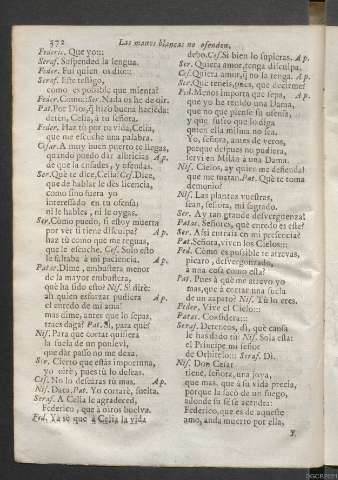 372 Las manos blancas no ofenden,
Federic. Que yo:::
Seraf. Suspended la lengua.
Feder. Fui quien os dice:::
Seraf. Este testigo,
como es posible que mienta?
Feder. Como::: Ser. Nada es de oir.
Pat. Por Dios, q̃ hizo buena haciẽda:
detèn, Celia, à tu señora.
Feder. Haz tù por tu vida, Celia,
que me escuche una palabra.
Cesar. A muy buen puerto te llegas,
quando puedo dar albricias Ap.
de que la enfades, y ofendas.
Ser. Què te dice, Celia? Ces. Dice,
que de hablar le dès licencia,
como sino fuera yo
interessado en tu ofensa:
ni le hables, ni le oygas.
Ser. Como puedo, si estoy muerta
por vèr si tiene disculpa? Ap.
haz tù como que me ruegas,
que le escuche. Ces. Solo esto
le faltaba à mi paciencia. Ap.
Patac. Dime, embustera menor
de la mayor embustera,
què ha sido esto? Nis. Si dirè:
ah quien esforzar pudiera Ap.
el enredo de mi ama!
mas dime, antes que lo sepas,
traes daga? Pat. Sì, para què?
Nis. Para que cortar quisiera
la suela de un ponlevì,
que dar passo no me dexa.
Ser. Cierto que estàs importuna,
yo oirè, pues tù lo deseas.
Ces. No lo desearàs tù mas. Ap.
Nis. Dàca. Pat. Yo cortarè, suelta.
Seraf. A Celia le agradeced,
Federico, que à oiros buelva.
Fed. Ya sè que à Celia la vida
debo. Ces. Si bien lo supieras. Ap.
Ser. Quiera amor, tenga disculpa.
Ces. Quiera amor, q̃ no la tenga. Ap.
Ser. Què teneis, pues, que decirme?
Fed. Menos importa que sepa, Ap.
que yo he recido una Dama,
que no que piense su ofensa,
y que sufro que lo diga
quien ella misma no sea.
Yo, señora, antes de veros,
porque despues no pudiera,
servì en Milàn à una Dama.
Nis. Cielos, ay quien me defienda!
que me matan. Pat. Què te toma
demonio?
Nis. Las plantas vuestras,
sean, señora, mi sagrado.
Ser. Ay tan grande desverguenza!
Patac. Señores, què enredo es este?
Ser. A sì entrais en mi presencia?
Pat. Señora, viven los Cielos:::
Fed. Còmo es possible te atrevas,
picaro, desvergonzado,
à una cosa como esta?
Pat. Pues à què me atrevo yo
mas, que à cortar una suela
de un zapato? Nis. Tù lo eres.
Feder. Vive el Cielo:::
Patac. Considera:::
Seraf. Deteneos, dì, què causa
le has dado tù? Nis. Solo esta:
el Principe mi señor
de Orbitelo::: Seraf. Dì.
Nis. Don Cesar
tiene, señora, una joya,
que mas, que à su vida precia,
porque la sacò de un fuego,
adonde su fè se acendra:
Federico, que es de aqueste
amo, anda muerto por ella,